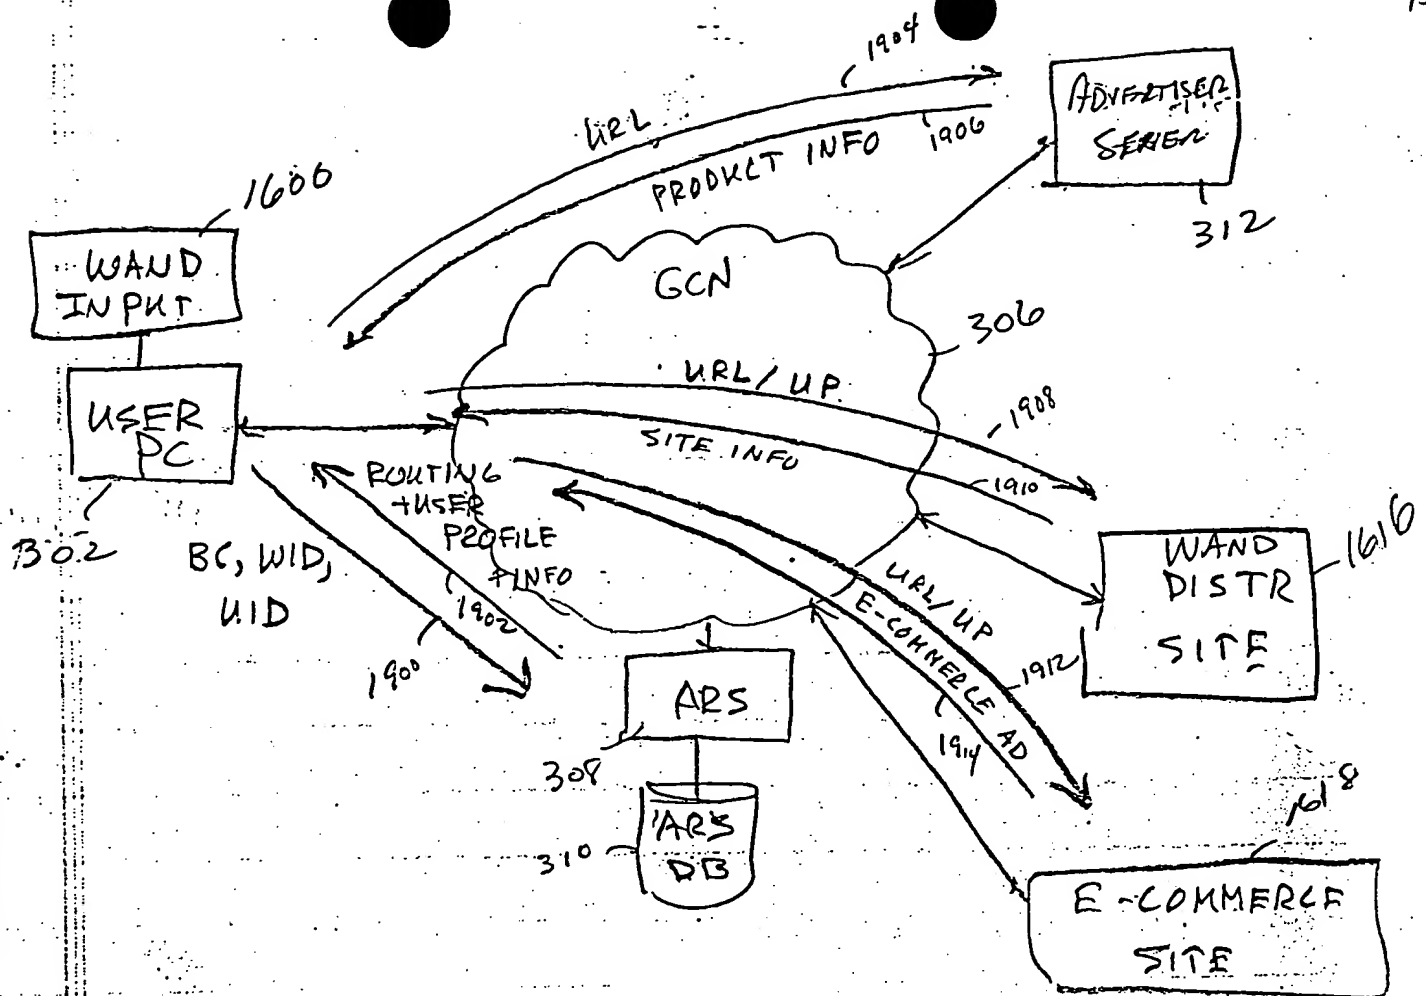 1904
URL
1906
PRODUCT INFO
ADVERTISER
SERVER
312
1600
WAND
INPUT
GCN
306
USER
PC
302
URL/UP
1908
SITE INFO
1910
ROUTING
+USER
PROFILE
+INFO
1902
BC, WID,
UID
1900
WAND
DISTR
SITE
1616
URL/UP
1912
E-COMMERCE AD
1914
ARS
308
ARS
DB
310
1618
E-COMMERCE
SITE